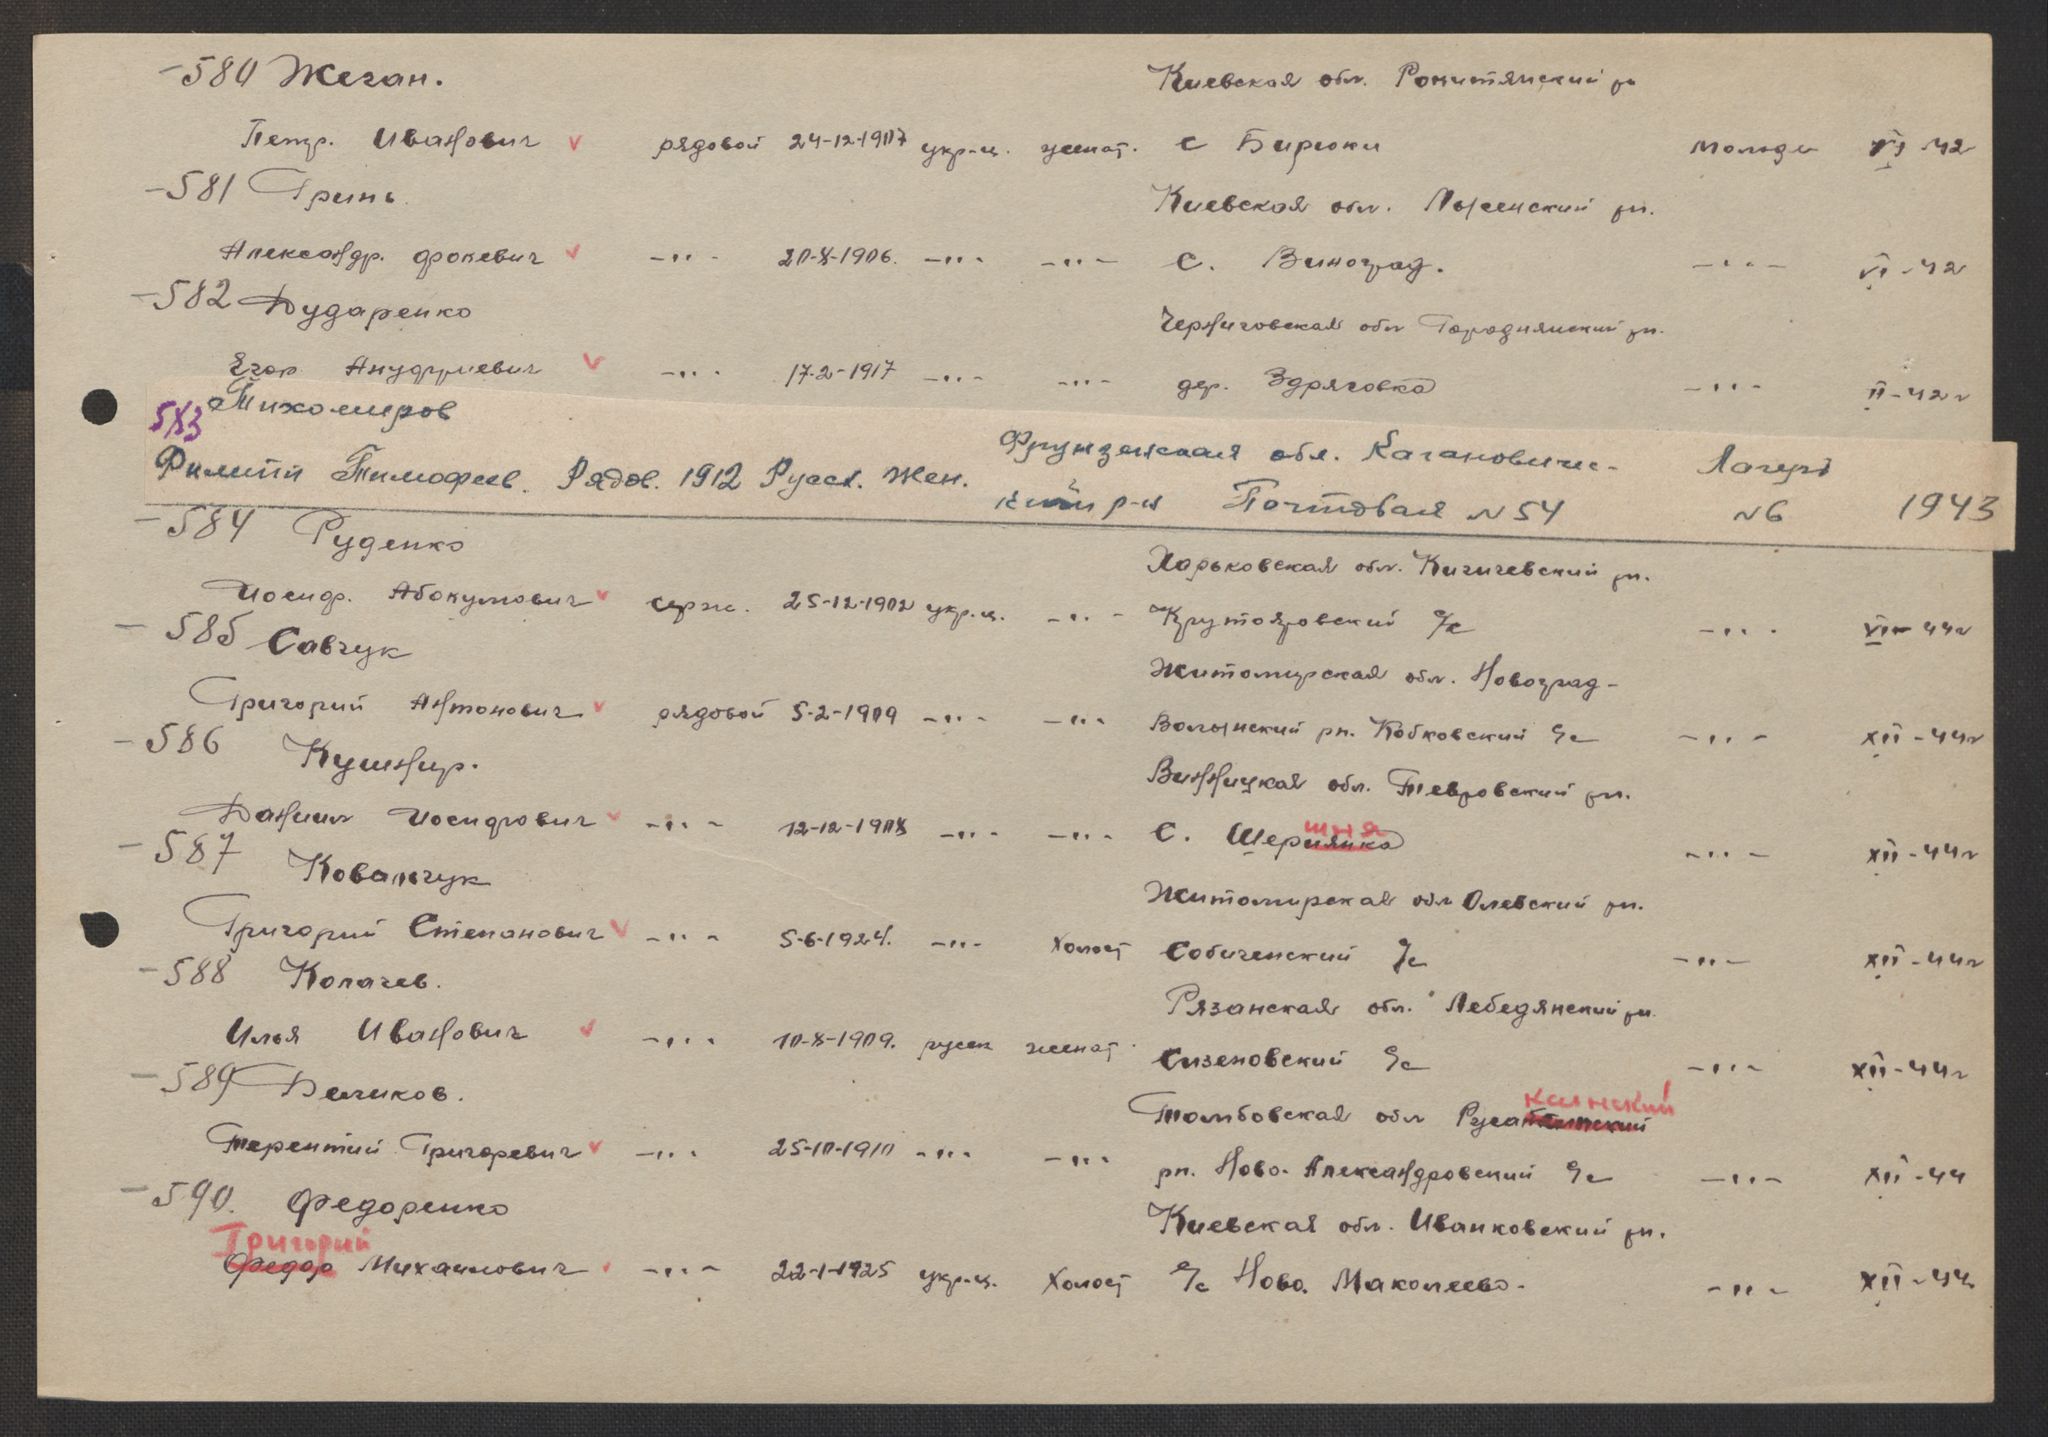 580 Жеган. Киевская обл. Рокитянский рн
Петр. Иванович v рядовой 24-12-1907 укр-ц. женат. с Бирюки Молоде VI -42
581 Гринь. Киевская обл. Лысенский рн.
Александр. Фокевич v -"- 20-X-1906. -"- -"- С. Виноград. -"- VI -42
582 Дударенко Черниговская обл Городнянский рн.
Егор Ануфриевич v -"- 17-2-1917 -"- -"- дер. Здряговка -"- II -42 г
583 Тихомиров Фрунзенская обл. Каганович- Лагерь
Филипп Тимофеев. Рядов. 1912 Русск. Жен. ский р-н Почтовая N 54 N6 1943
584 Руденко Харьковская обл. Кигичевский рн.
Иосиф. Абакумович v серж. 25-12-1902 укр.ц. -"- Крутояровский с/с -"- 44г
585 Савчук Житомирская обл. Новоград-
Григорий Антонович v рядовой 5-2-1909 -"- -"- Волынский рн. Кобковский с/с -"- XII -44г
586 Кушнир. Винницкая обл. Тевровский рн.
Даниил Иосифович v -"- 12-12-1908 -"- -"- С. Шершня -"- XII -44г
587 Ковальчук Житомирская обл Олевский рн.
Григорий Степанович v -"- 5-6-1924. -"- Холост Собиченский с/с -"- XII -44г
588 Колачев. Рязанская обл. Лебедянский рн.
Илья Иванович v -"- 10-X-1909. русск женат Сизеновский с/с -"- XII -44г
589 Беликов. Тамбовская обл Русанский
Терентий Григоревич v -"- 25-10-1910 -"- -"- рн. Ново-Александровский с/с -"- XII -44
590. Федоренко Киевская обл. Иванковский рн.
Григорий
Федор Михайлович -"- 22-1-1925 укр-ц. Холост с/с Ново. Макалеево. -"- XII -44